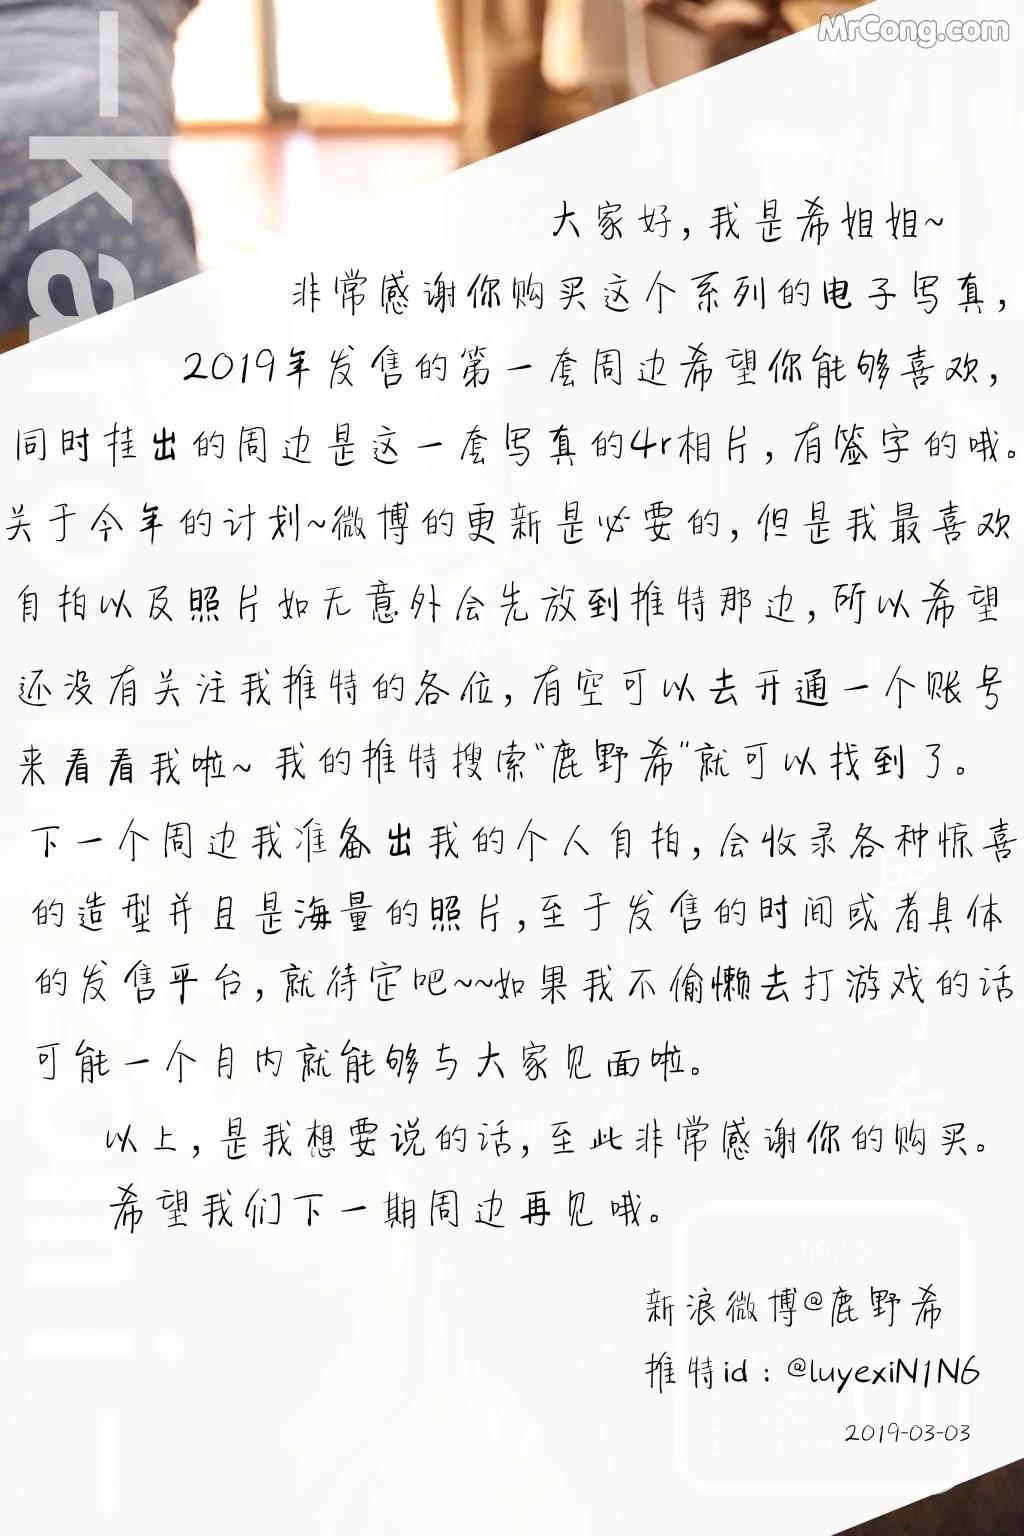 MrCong.com
大家好,我是希姐姐~
非常感谢你购买这个系列的电子写真,
2019年发售的第一套周边希望你能够喜欢,
同时挂出的周边是这一套写真的4r相片,有签字的哦。
关于今年的计划~微博的更新是必要的,但是我最喜欢
自拍以及照片如无意外会先放到推特那边,所以希望
还没有关注我推特的各位,有空可以去开通一个账号
来看看我啦~ 我的推特搜索"鹿野希"就可以找到了。
下一个周边我准备出我的个人自拍,会收录各种惊喜
的造型并且是海量的照片,至于发售的时间或者具体
的发售平台,就待定吧~~如果我不偷懒去打游戏的话
可能一个月内就能够与大家见面啦。
以上,是我想要说的话,至此非常感谢你的购买。
希望我们下一期周边再见哦。
新浪微博@鹿野希
推特id:@luyexiN1N6
2019-03-03